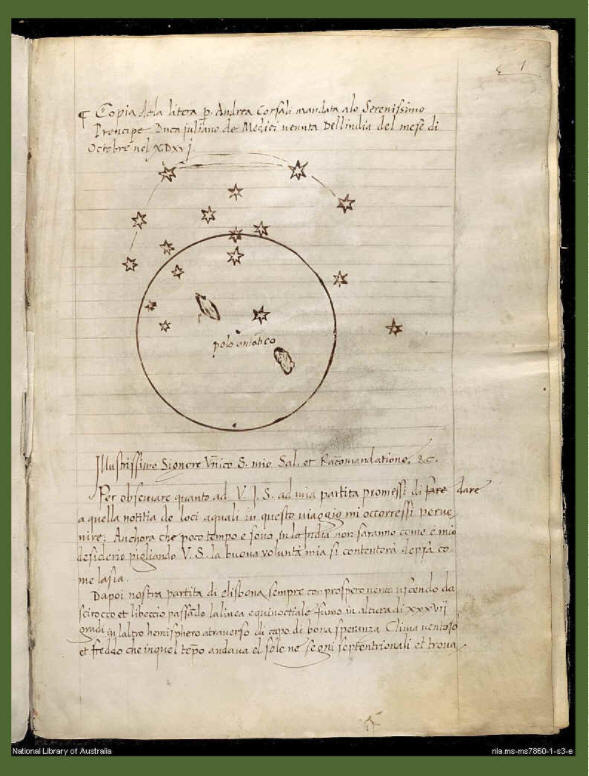 1
¶ Copia dela litera p. Andrea Corsali mandata alo Serenissimo
Principe Duca juliano de Medici venuta Dellindia del mese di
Octobre nel XDXVJ
polo antartico
Illustrissimo Signore Vnico S. mio Sal. et Racomandatione. &c.
Per observare quanto ad V. J. S. ad mia partita promessi di fare dare
a quella notitia de loci aquali in questo viaggio mi occorressi perve
nire; Anchora che poco tempo e sono in la India non saranno come e mio
desiderio pigliando V. S. la buona volunta mia si contentera
me lasia.
Dapoi nostra partita di elisbona sempre con prospero vento uscendo da
scirocco et libeccio passado la linea equinoctiale fumo in altura di xxxvij
gradi in laltro hemisphero a traverso di capo di bona speranza Clima ventoso
et freddo che in quel tepo andava el sole ne segni septentrionali et trova
National Library of Australia
nla.ms-ms7860-1-s3-e